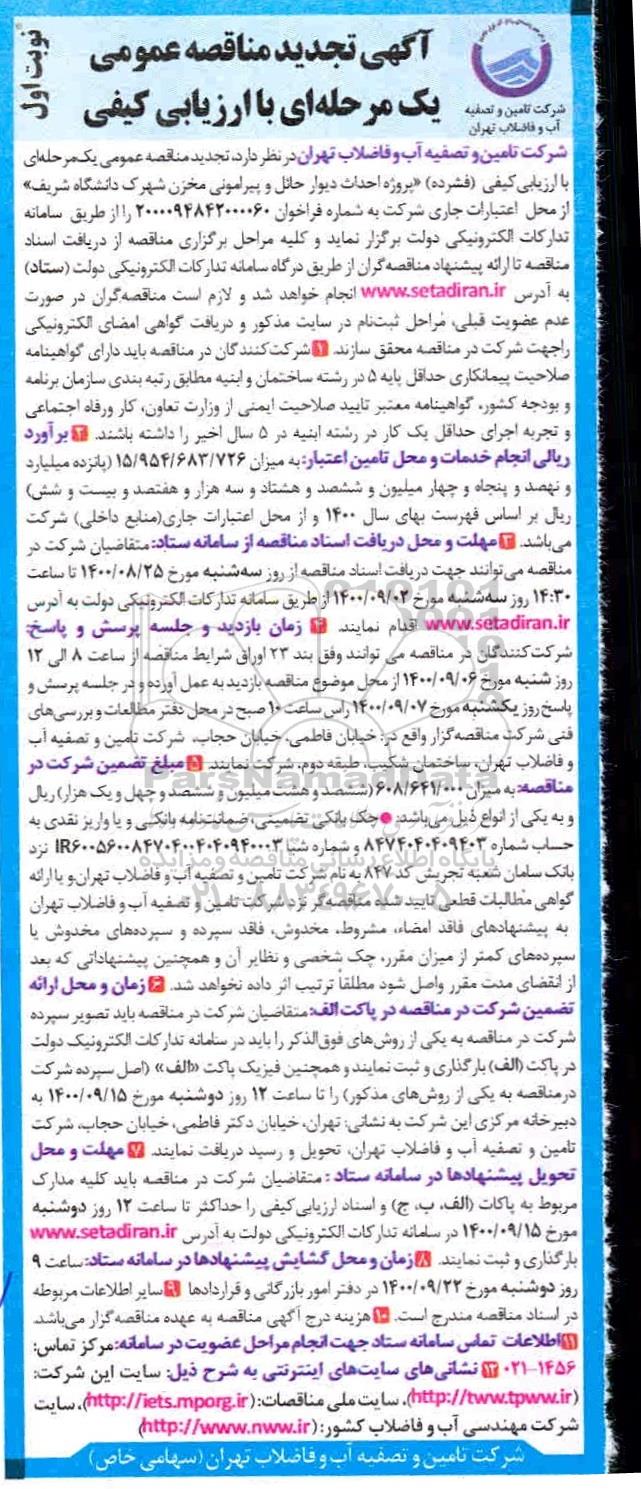 نوبت اول
آگهی تجدید مناقصه عمومی
یک مرحله‌ای با ارزیابی کیفی
شرکت تامین و تصفیه
آب و فاضلاب تهران
شرکت تامین و تصفیه آب و فاضلاب تهران در نظر دارد، تجدید مناقصه عمومی یک مرحله‌ای
با ارزیابی کیفی (فشرده) «پروژه احداث دیوار حائل و پیرامونی مخزن شهرک دانشگاه شریف»
از محل اعتبارات جاری شرکت به شماره فراخوان ۲۰۰۰۰۹۴۸۴۲۰۰۰۰۶۰ را از طریق سامانه
تدارکات الکترونیکی دولت برگزار نماید و کلیه مراحل برگزاری مناقصه از دریافت اسناد
مناقصه تا ارائه پیشنهاد مناقصه‌گران از طریق درگاه سامانه تدارکات الکترونیکی دولت (ستاد)
به آدرس www.setadiran.ir انجام خواهد شد و لازم است مناقصه‌گران در صورت
عدم عضویت قبلی، مراحل ثبت‌نام در سایت مذکور و دریافت گواهی امضای الکترونیکی
را جهت شرکت در مناقصه محقق سازند. ۱ شرکت‌کنندگان در مناقصه باید دارای گواهینامه
صلاحیت پیمانکاری حداقل پایه ۵ در رشته ساختمان و ابنیه مطابق رتبه بندی سازمان برنامه
و بودجه کشور، گواهینامه معتبر تایید صلاحیت ایمنی از وزارت تعاون، کار و رفاه اجتماعی
و تجربه اجرای حداقل یک کار در رشته ابنیه در ۵ سال اخیر را داشته باشند. ۲ برآورد
ریالی انجام خدمات و محل تامین اعتبار: به میزان ۱۵/۹۵۴/۶۸۳/۷۲۶ (پانزده میلیارد
و نهصد و پنجاه و چهار میلیون و ششصد و هشتاد و سه هزار و هفتصد و بیست و شش)
ریال بر اساس فهرست بهای سال ۱۴۰۰ و از محل اعتبارات جاری(منابع داخلی) شرکت
می‌باشد. ۳ مهلت و محل دریافت اسناد مناقصه از سامانه ستاد: متقاضیان شرکت در
مناقصه می‌توانند جهت دریافت اسناد مناقصه از روز سه‌شنبه مورخ ۱۴۰۰/۰۸/۲۵ تا ساعت
۱۴:۳۰ روز سه‌شنبه مورخ ۱۴۰۰/۰۹/۰۲ از طریق سامانه تدارکات الکترونیکی دولت به آدرس
www.setadiran.ir اقدام نمایند. ۴ زمان بازدید و جلسه پرسش و پاسخ:
شرکت‌کنندگان در مناقصه می توانند وفق بند ۲۳ اوراق شرایط مناقصه از ساعت ۸ الی ۱۲
روز شنبه مورخ ۱۴۰۰/۰۹/۰۶ از محل موضوع مناقصه بازدید به عمل آورده و در جلسه پرسش و
پاسخ روز یکشنبه مورخ ۱۴۰۰/۰۹/۰۷ راس ساعت ۱۰ صبح در محل دفتر مطالعات و بررسی‌های
فنی شرکت مناقصه‌گزار واقع در: خیابان فاطمی، خیابان حجاب، شرکت تامین و تصفیه آب
و فاضلاب تهران، ساختمان شکیب، طبقه دوم، شرکت نمایند. ۵ مبلغ تضمین شرکت در
مناقصه: به میزان ۶۰۸/۶۴۱/۰۰۰ (ششصد و هشت میلیون و ششصد و چهل و یک هزار) ریال
و به یکی از انواع ذیل می‌باشد: ● چک بانکی تضمینی، ضمانت‌نامه بانکی و یا واریز نقدی به
حساب شماره ۸۴۷۴۰۴۰۴۰۹۴۰۳ و شماره شبا IR۶۰۰۵۶۰۰۸۴۷۰۴۰۰۴۰۴۰۹۴۰۰۳ نزد
بانک سامان شعبه تجریش کد ۸۴۷ به نام شرکت تامین و تصفیه آب و فاضلاب تهران و یا ارائه
گواهی مطالبات قطعی تایید شده مناقصه‌گر نزد شرکت تامین و تصفیه آب و فاضلاب تهران
به پیشنهادهای فاقد امضاء، مشروط، مخدوش، فاقد سپرده و سپرده‌های مخدوش یا
سپرده‌های کمتر از میزان مقرر، چک شخصی و نظایر آن و همچنین پیشنهاداتی که بعد
از انقضای مدت مقرر واصل شود مطلقاً ترتیب اثر داده نخواهد شد. ۶ زمان و محل ارائه
تضمین شرکت در مناقصه در پاکت الف: متقاضیان شرکت در مناقصه باید تصویر سپرده
شرکت در مناقصه به یکی از روش‌های فوق‌الذکر را باید در سامانه تدارکات الکترونیک دولت
در پاکت (الف) بارگذاری و ثبت نمایند و همچنین فیزیک پاکت «الف» (اصل سپرده شرکت
درمناقصه به یکی از روش‌های مذکور) را تا ساعت ۱۲ روز دوشنبه مورخ ۱۴۰۰/۰۹/۱۵ به
دبیرخانه مرکزی این شرکت به نشانی: تهران، خیابان دکتر فاطمی، خیابان حجاب، شرکت
تامین و تصفیه آب و فاضلاب تهران، تحویل و رسید دریافت نمایند. ۷ مهلت و محل
تحویل پیشنهادها در سامانه ستاد : متقاضیان شرکت در مناقصه باید کلیه مدارک
مربوط به پاکات (الف، ب، ج) و اسناد ارزیابی کیفی را حداکثر تا ساعت ۱۲ روز دوشنبه
مورخ ۱۴۰۰/۰۹/۱۵ در سامانه تدارکات الکترونیکی دولت به آدرس www.setadiran.ir
بارگذاری و ثبت نمایند. ۸ زمان و محل گشایش پیشنهادها در سامانه ستاد: ساعت ۹
روز دوشنبه مورخ ۱۴۰۰/۰۹/۲۲ در دفتر امور بازرگانی و قراردادها ۹ سایر اطلاعات مربوطه
در اسناد مناقصه مندرج است. ۱۰ هزینه درج آگهی مناقصه به عهده مناقصه‌گزار می‌باشد.
۱۱ اطلاعات تماس سامانه ستاد جهت انجام مراحل عضویت در سامانه: مرکز تماس:
۰۲۱-۱۴۵۶ ۱۲ نشانی‌های سایت‌های اینترنتی به شرح ذیل: سایت این شرکت:
(http://tww.tpww.ir)، سایت ملی مناقصات: (http://iets.mporg.ir)، سایت
شرکت مهندسی آب و فاضلاب کشور: (http://www.nww.ir)
شرکت تامین و تصفیه آب و فاضلاب تهران (سهامی خاص)